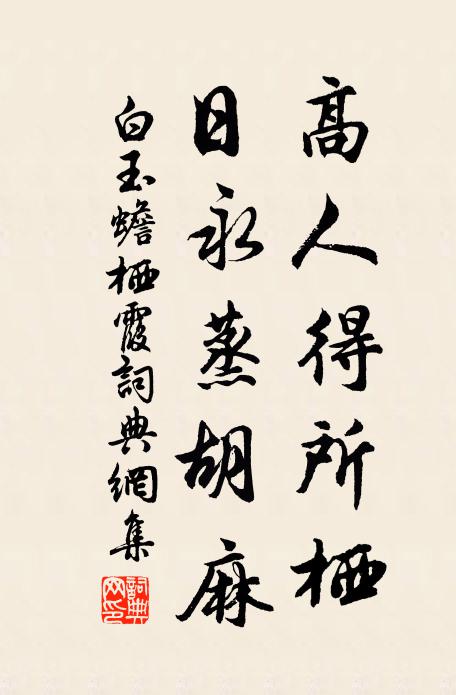 高人得所栖
日永蒸胡麻
白玉蟾栖霞詞典網集
詞典网印